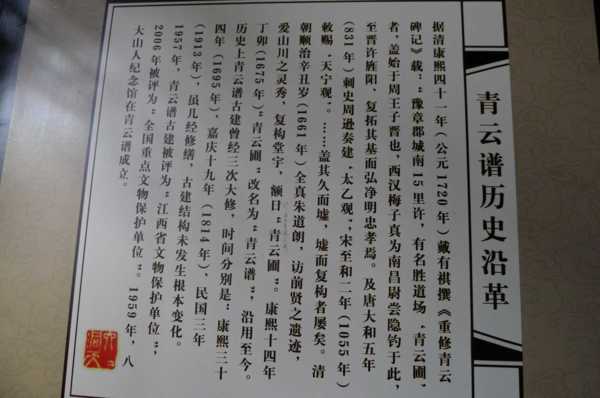 青云谱历史沿革
据清康熙四十一年(公元1720年)戴有祺撰《重修青云
碑记》载:“豫章郡城南15里许,有名胜道场.青云圃,
者,盖始于周王子晋也,西汉梅子真为南昌尉尝隐钓于此,
至晋许旌阳、复拓其基而弘净明忠孝焉。及唐大和五年
(831年)刺史周逊奏建.太乙观”,宋至和二年(1055年)
敕赐.天宁观”。……盖其久而墟,墟而复构者屡矣。清
朝顺治辛丑岁(1661年)全真朱道朗,访前贤之遗迹,
爱山川之灵秀,复构堂宇,额曰“青云圃”。康熙十四年
丁卯(1675年)“青云圃”改名为“青云谱”,沿用至今。
历史上青云谱古建曾经三次大修,时间分别是“康熙三十
四年(1695年),嘉庆十九年(1814年),民国三年
(1913年),虽几经修缮,古建结构未发生根本变化。
1957年,青云谱古建被评为“江西省文物保护单位”,
2006年被评为“全国重点文物保护单位”。1959年,八
大山人纪念馆在青云谱成立。